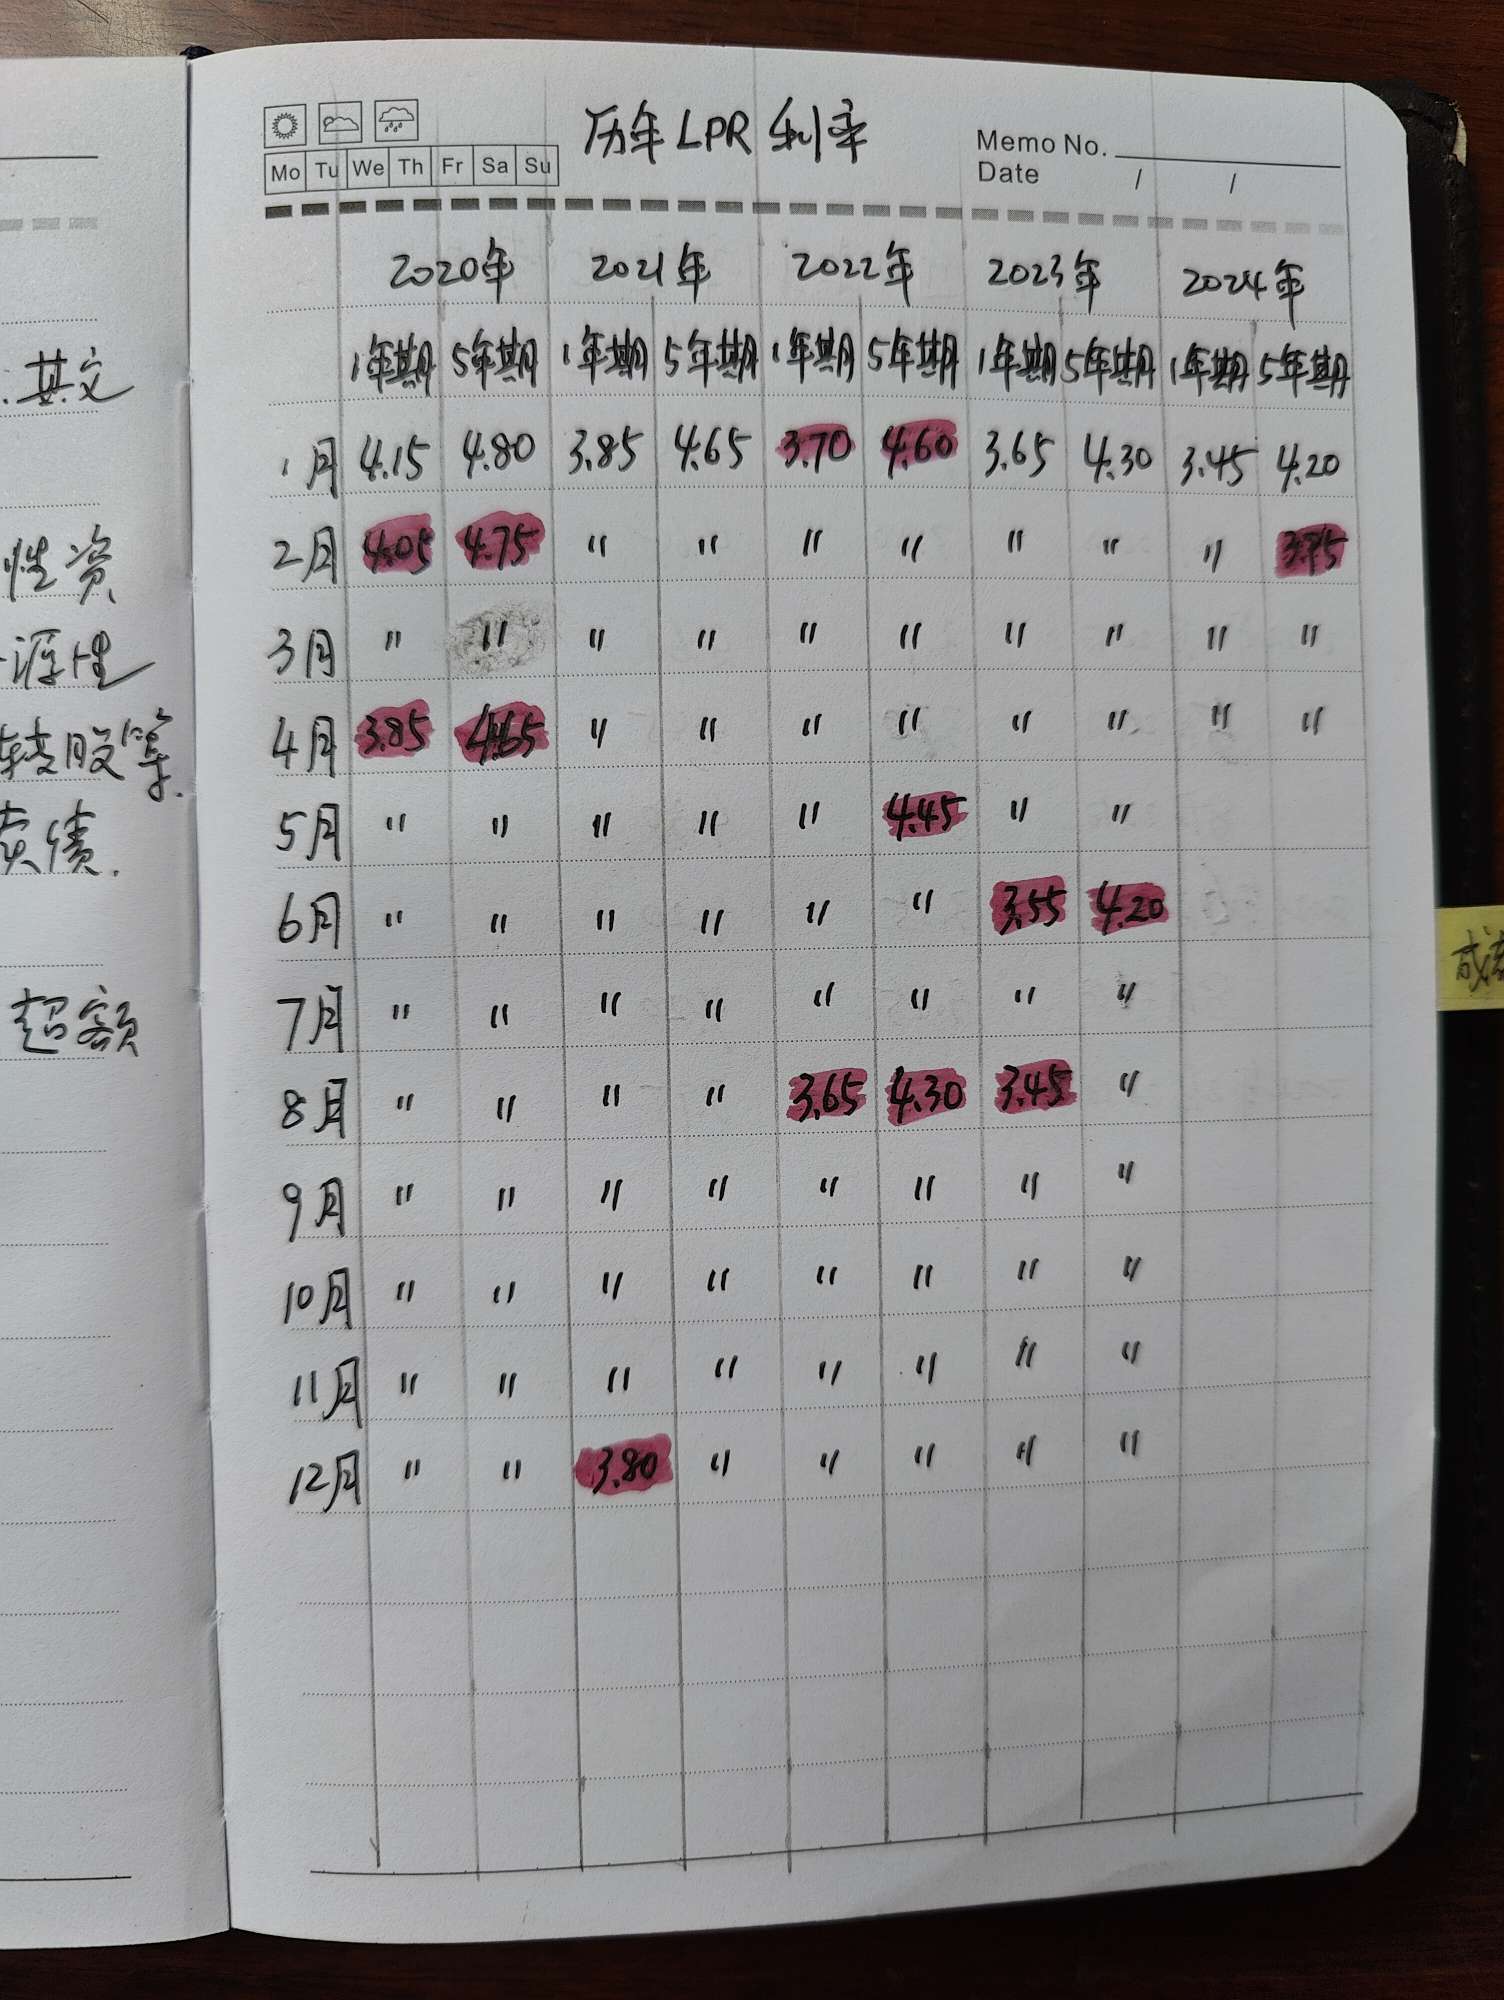 历年LPR利率
Memo No.
Mo Tu We Th Fr Sa Su
Date / /
2020年 2021年 2022年 2023年 2024年
1年期 5年期 1年期 5年期 1年期 5年期 1年期 5年期 1年期 5年期
1月 4.15 4.80 3.85 4.65 3.70 4.60 3.65 4.30 3.45 4.20
2月 4.05 4.75 " " " " " " " 3.95
3月 " " " " " " " " " "
4月 3.85 4.65 " " " " " " " "
5月 " " " " " 4.45 " "
6月 " " " " " " 3.55 4.20
7月 " " " " " " " "
8月 " " " " 3.65 4.30 3.45 "
9月 " " " " " " " "
10月 " " " " " " " "
11月 " " " " " " " "
12月 " " 3.80 " " " " "
其文
性资
源性
转股等.
卖债.
超额